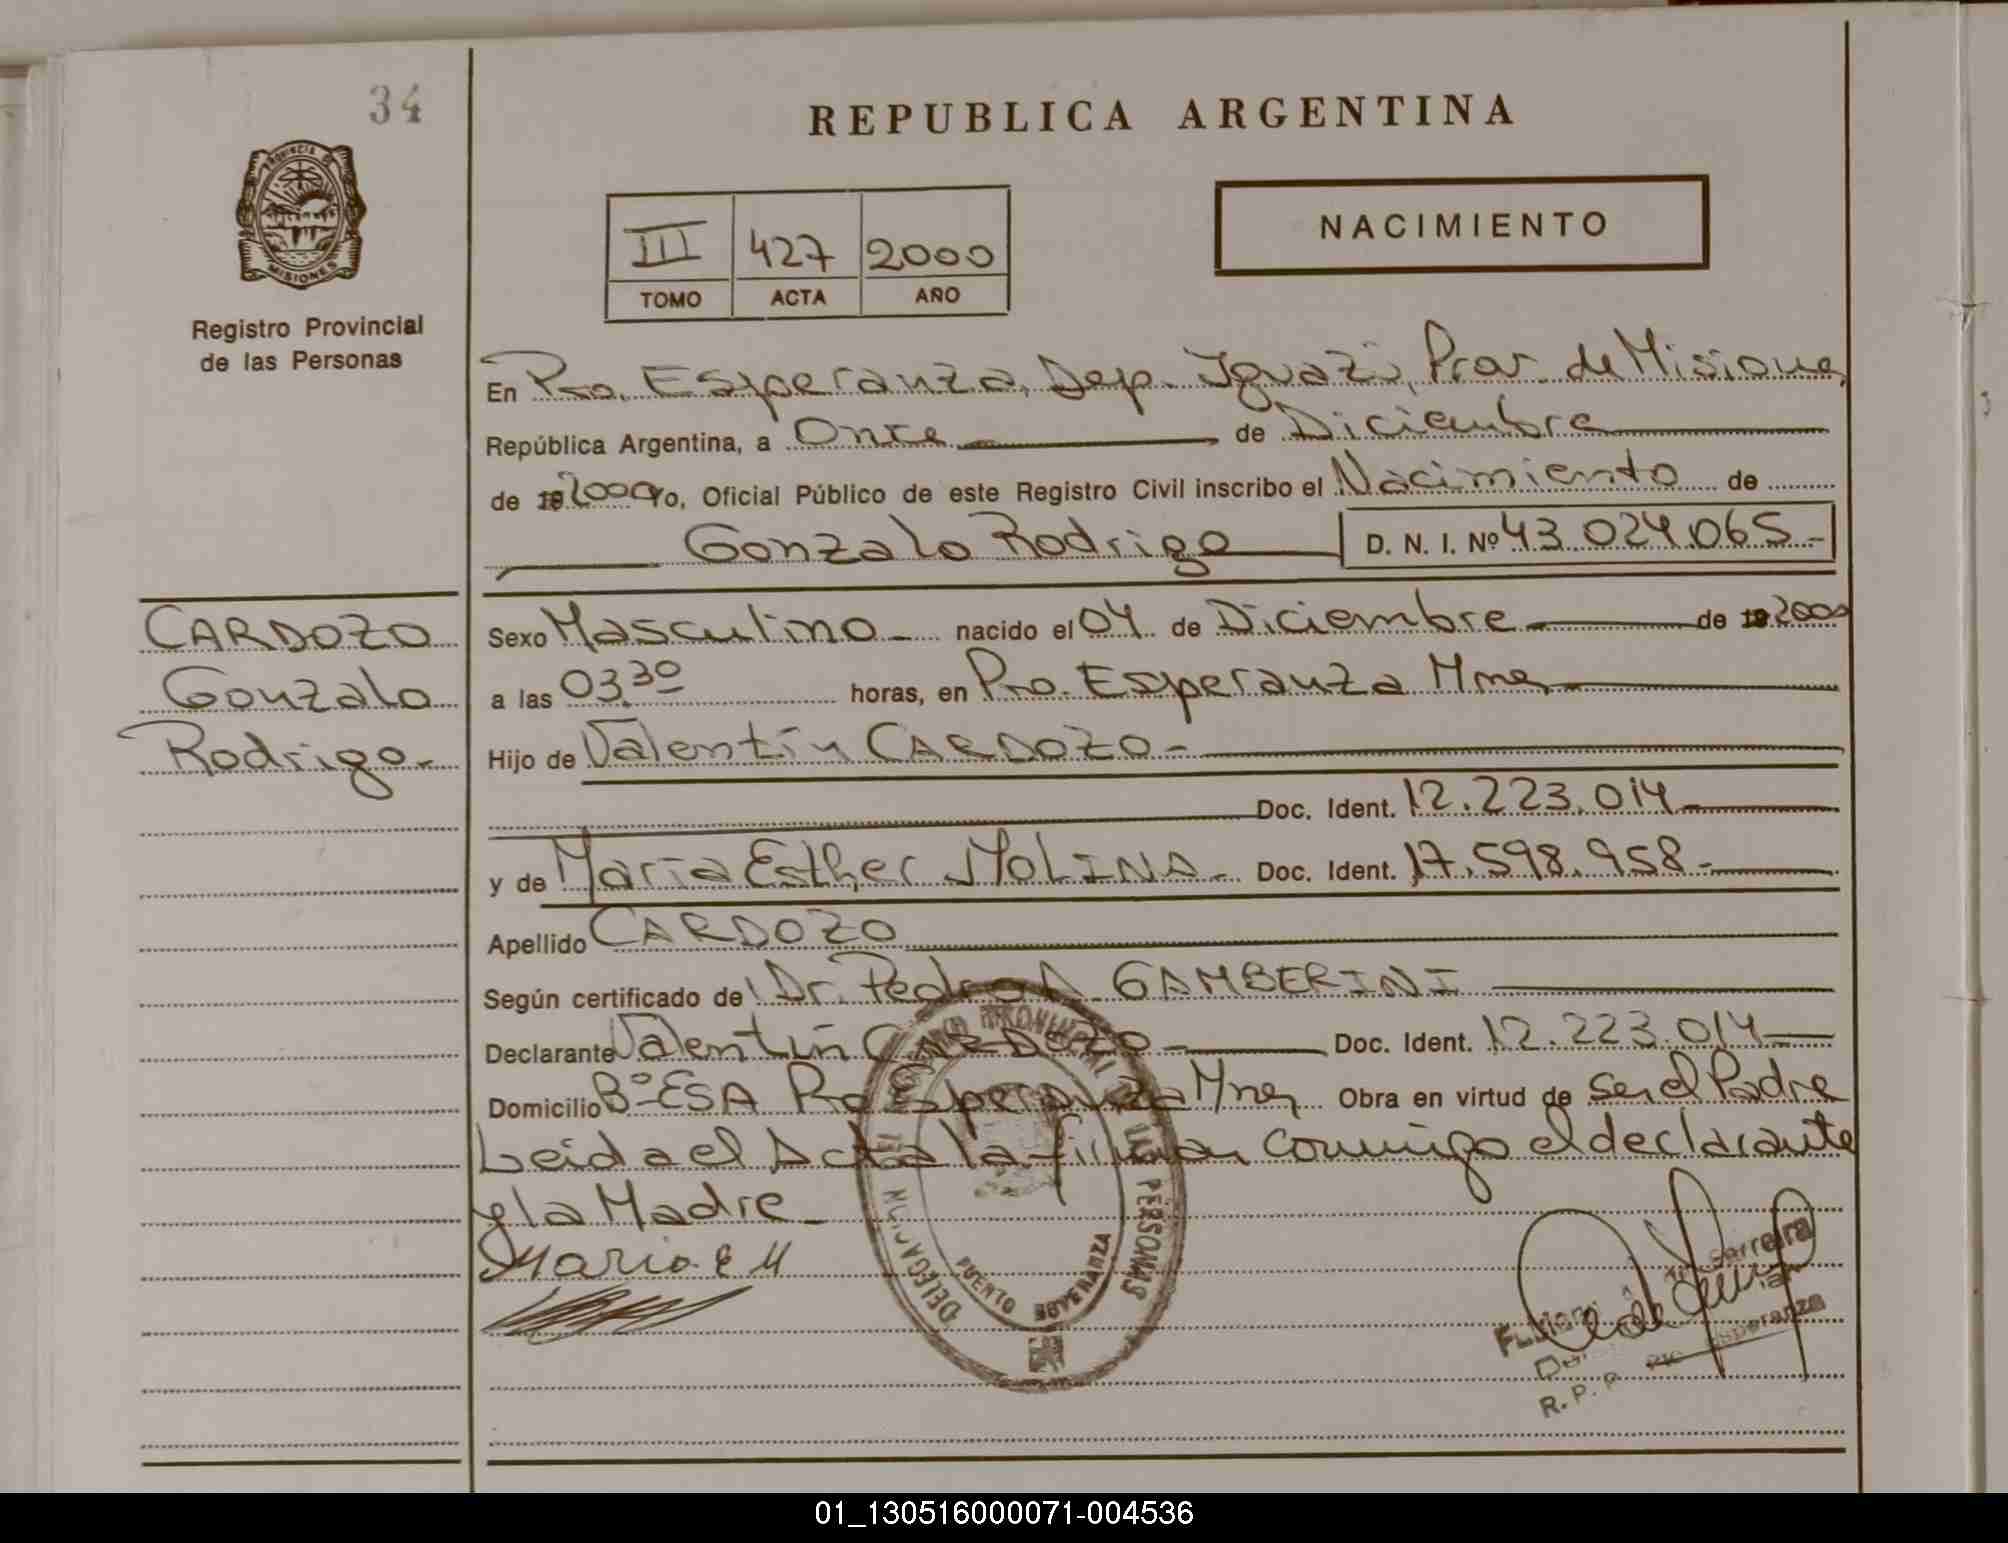 34
PROVINCIA DE
MISIONES
Registro Provincial
de las Personas
REPUBLICA ARGENTINA
III 427 2000
TOMO ACTA AÑO
NACIMIENTO
En Pto. Esperanza, Dep. Iguazú, Prov. de Misiones,
República Argentina, a Once de Diciembre
de 19 2000 Yo, Oficial Público de este Registro Civil inscribo el Nacimiento de
Gonzalo Rodrigo D. N. I. Nº 43.024.065.-
CARDOZO
Gonzalo
Rodrigo.-
Sexo Masculino.- nacido el 04 de Diciembre de 19 2000
a las 03.30 horas, en Pto. Esperanza Mnes
Hijo de Valentín CARDOZO.-
Doc. Ident. 12.223.014.-
y de María Esther MOLINA.- Doc. Ident. 17.598.958.-
Apellido CARDOZO
Según certificado de Dr. Pedro A. GAMBERINI
Declarante Valentín CARDOZO.- Doc. Ident. 12.223.014
Domicilio Bº ESA Pto Esperanza Mnes Obra en virtud de ser el Padre
Leida el Acta la firman conmigo el declarante
y la Madre.-
Maria. E M
DELEGACION
PROVINCIAL DE LAS PERSONAS
PUERTO ESPERANZA
Ferreira
R. P. P. Pto Esperanza
01_130516000071-004536